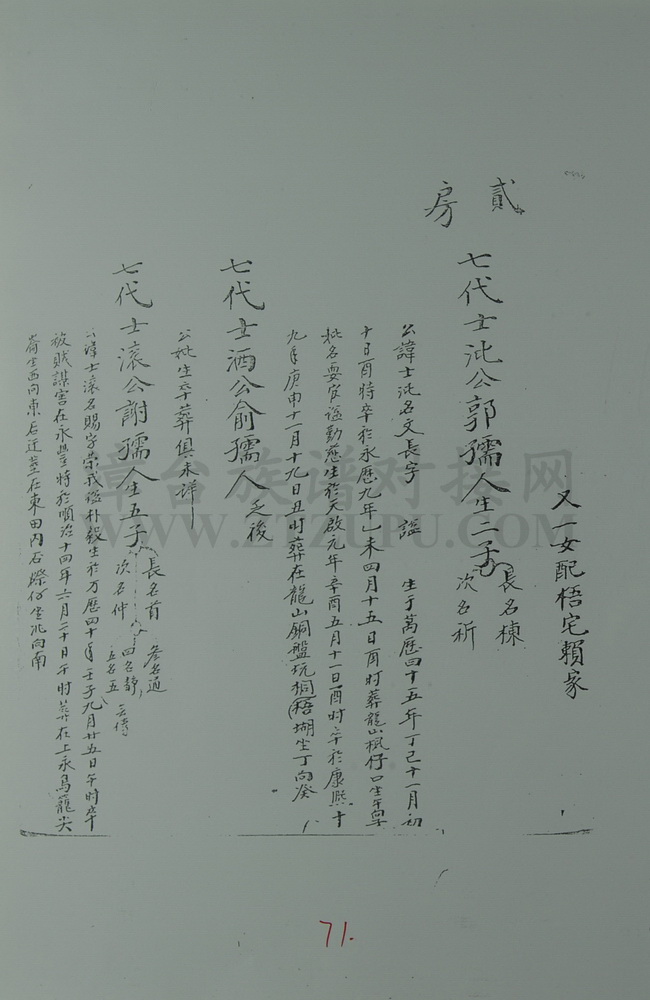 又一女配梧宅賴家
貳房
七代士沘公郭孺人生二子
長名棟
次名祈
公諱士沘名文長字 諡 生于萬歷四十五年丁巳十一月初
十日酉時卒於永歷九年乙未四月十五日酉時葬龍山楓仔口坐
妣名 諡勤慈生於天啟元年辛酉五月十一日酉時卒於康熙十
九年庚申十一月十九日丑時葬在龍山銅盤坑梧湖坐丁向癸
七代士洒公俞孺人乏後
公妣生卒葬俱未詳
七代士滚公謝孺人生五子
長名首 叁名通
次名仲 四名靜
五名五
公諱士滚名賜字榮我諡朴毅生於万歷四十年壬子九月廿五日午時卒
被賊謀害在永豊時於順治十四年六月二十日午時葬在上永烏籠尖
崙坐西向東后迁葬在東田內石 仔坐北向南
71.
漳台族谱对接网
WWW.ZTZUPU.COM